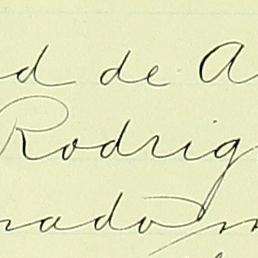 d de A
Rodrig
nado